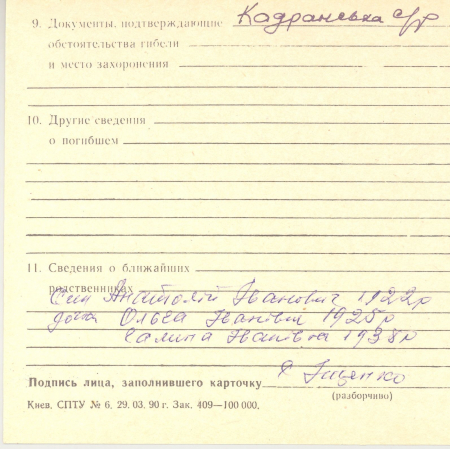 9. Документы, подтверждающие Кадранська с/р
обстоятельства гибели
и место захоронения
10. Другие сведения
о погибшем
11. Сведения о ближайших
родственниках
Син Анатолій Іванович 1922р
дочка Ольга Іванівна 1925р
Галина Іванівна 1938р
Подпись лица, заполнившего карточку Іщенко
(разборчиво)
Киев, СПТУ № 6, 29. 03. 90 г. Зак. 409—100 000.